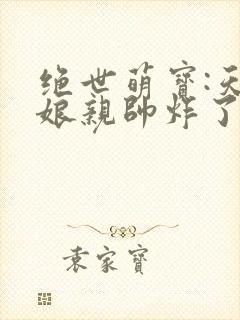 绝世萌寶:天
娘親帥炸了
袁家寶